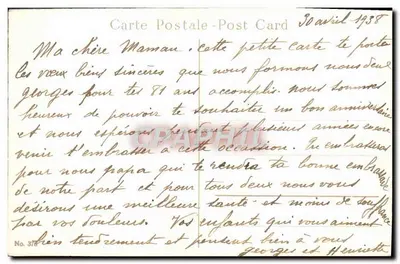 Carte Postale - Post Card
30 avril 1938
Ma chère Maman. cette petite carte te porte
les vœux biens sincères que nous formons nous deux
georges pour tes 81 ans accomplis. nous sommes
heureux de pouvoir te souhaiter un bon anniversaire
et nous espérons pendant plusieurs années encore
venir t'embrasser à cette occasion. tu embrasseras
pour nous papa qui te rendra ta bonne embrassade
de notre part et pour tous deux nous vous
désirons une meilleure santé et moins de souffrance
par vos douleurs. Vos enfants qui vous aiment
bien tendrement et pensent bien à vous
georges et Henriette
CPAPHIL